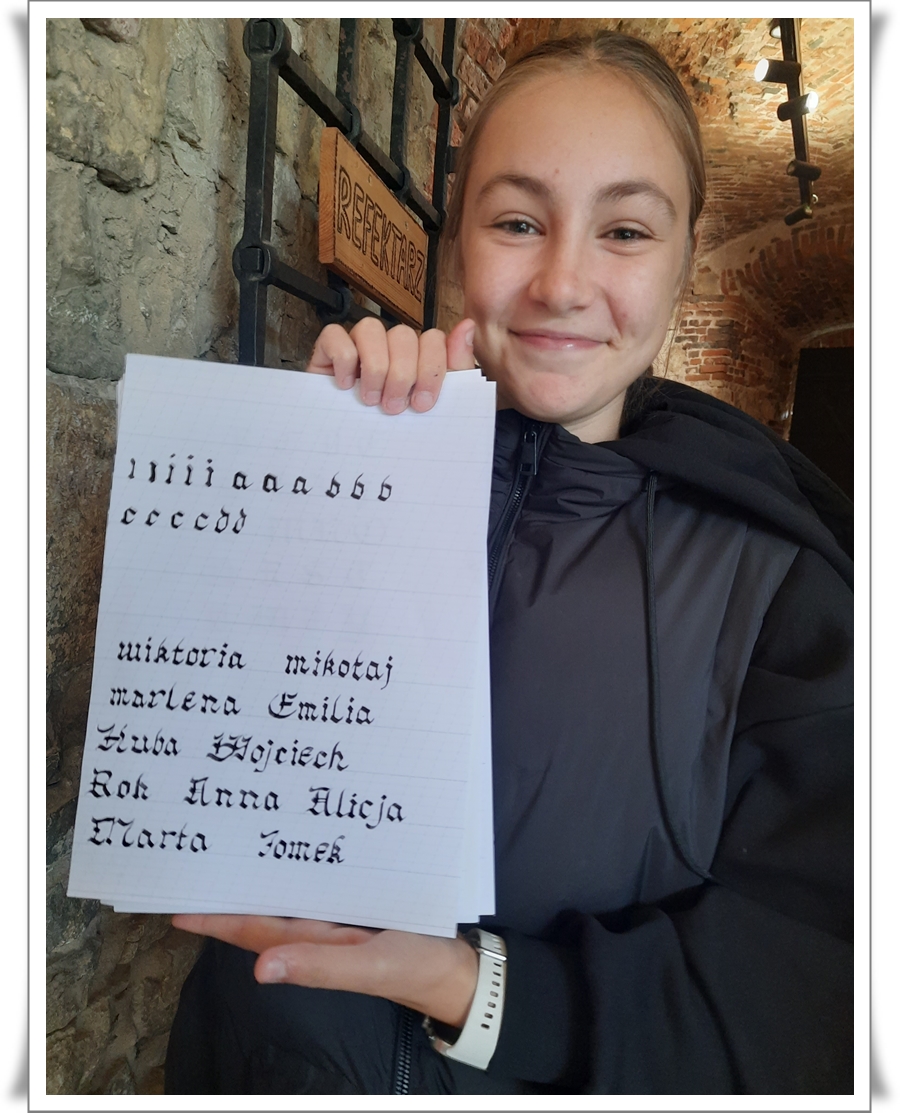 REFEKTARZ
ı ı i i i a a a b b b
c c c c c d d
wiktoria mikołaj
marlena Emilia
Kuba Wojciech
Roh Anna Alicja
Marta Tomek